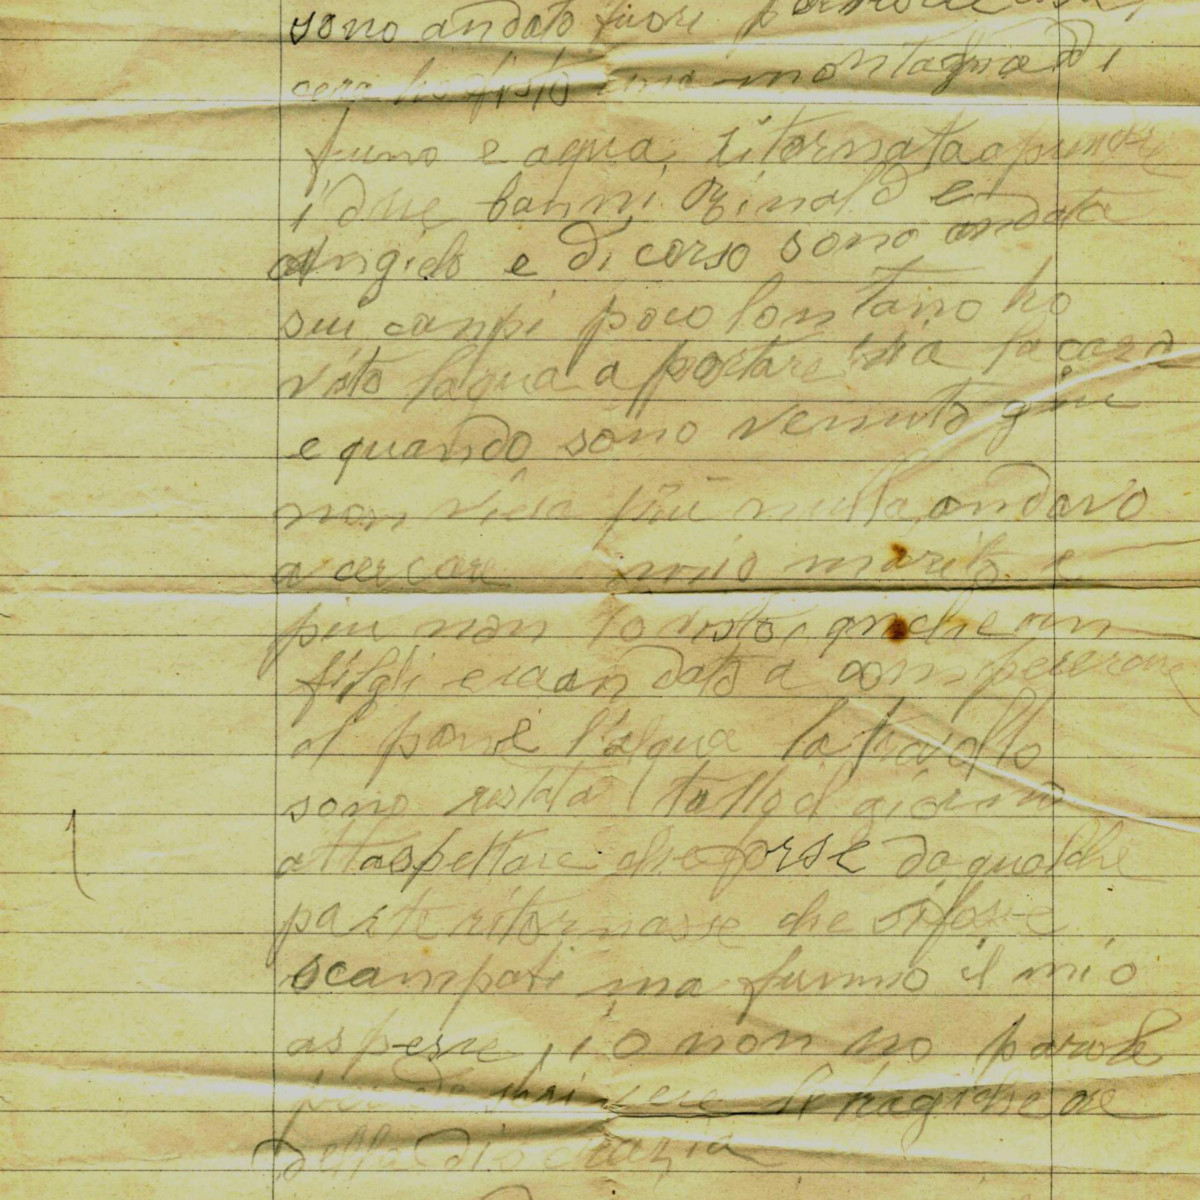 sono andato fuori
ho visto una montagna di
fumo e aqua, ritornata a prendere
i due banni Rinaldo e
Angielo e di corso sono andata
sui campi poco lontano ho
visto laqua a portare via la casa
e quando sono venuta giu
non viera piu nulla, andavo
a cercare mio marito e
piu non lo visto, anche un
figli era andato a
al pane l'aqua la travolto
sono restata tutto il giorno
attaspettare che forse da qualche
parte ritornasse che si fosse
scampati ma fumo il mio
io non no parole
scrivere le tragiche ore
della disgrazia